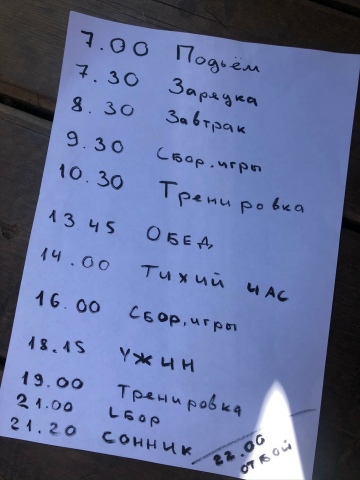 7.00 Подъём
7.30 Зарядка
8.30 Завтрак
9.30 Сбор, игры
10.30 Тренировка
13.45 ОБЕД
14.00 ТИХИЙ ЧАС
16.00 СБОР, игры
18.15 УЖИН
19.00 Тренировка
21.00 Сбор
21.20 СОННИК
22.00
ОТБОЙ